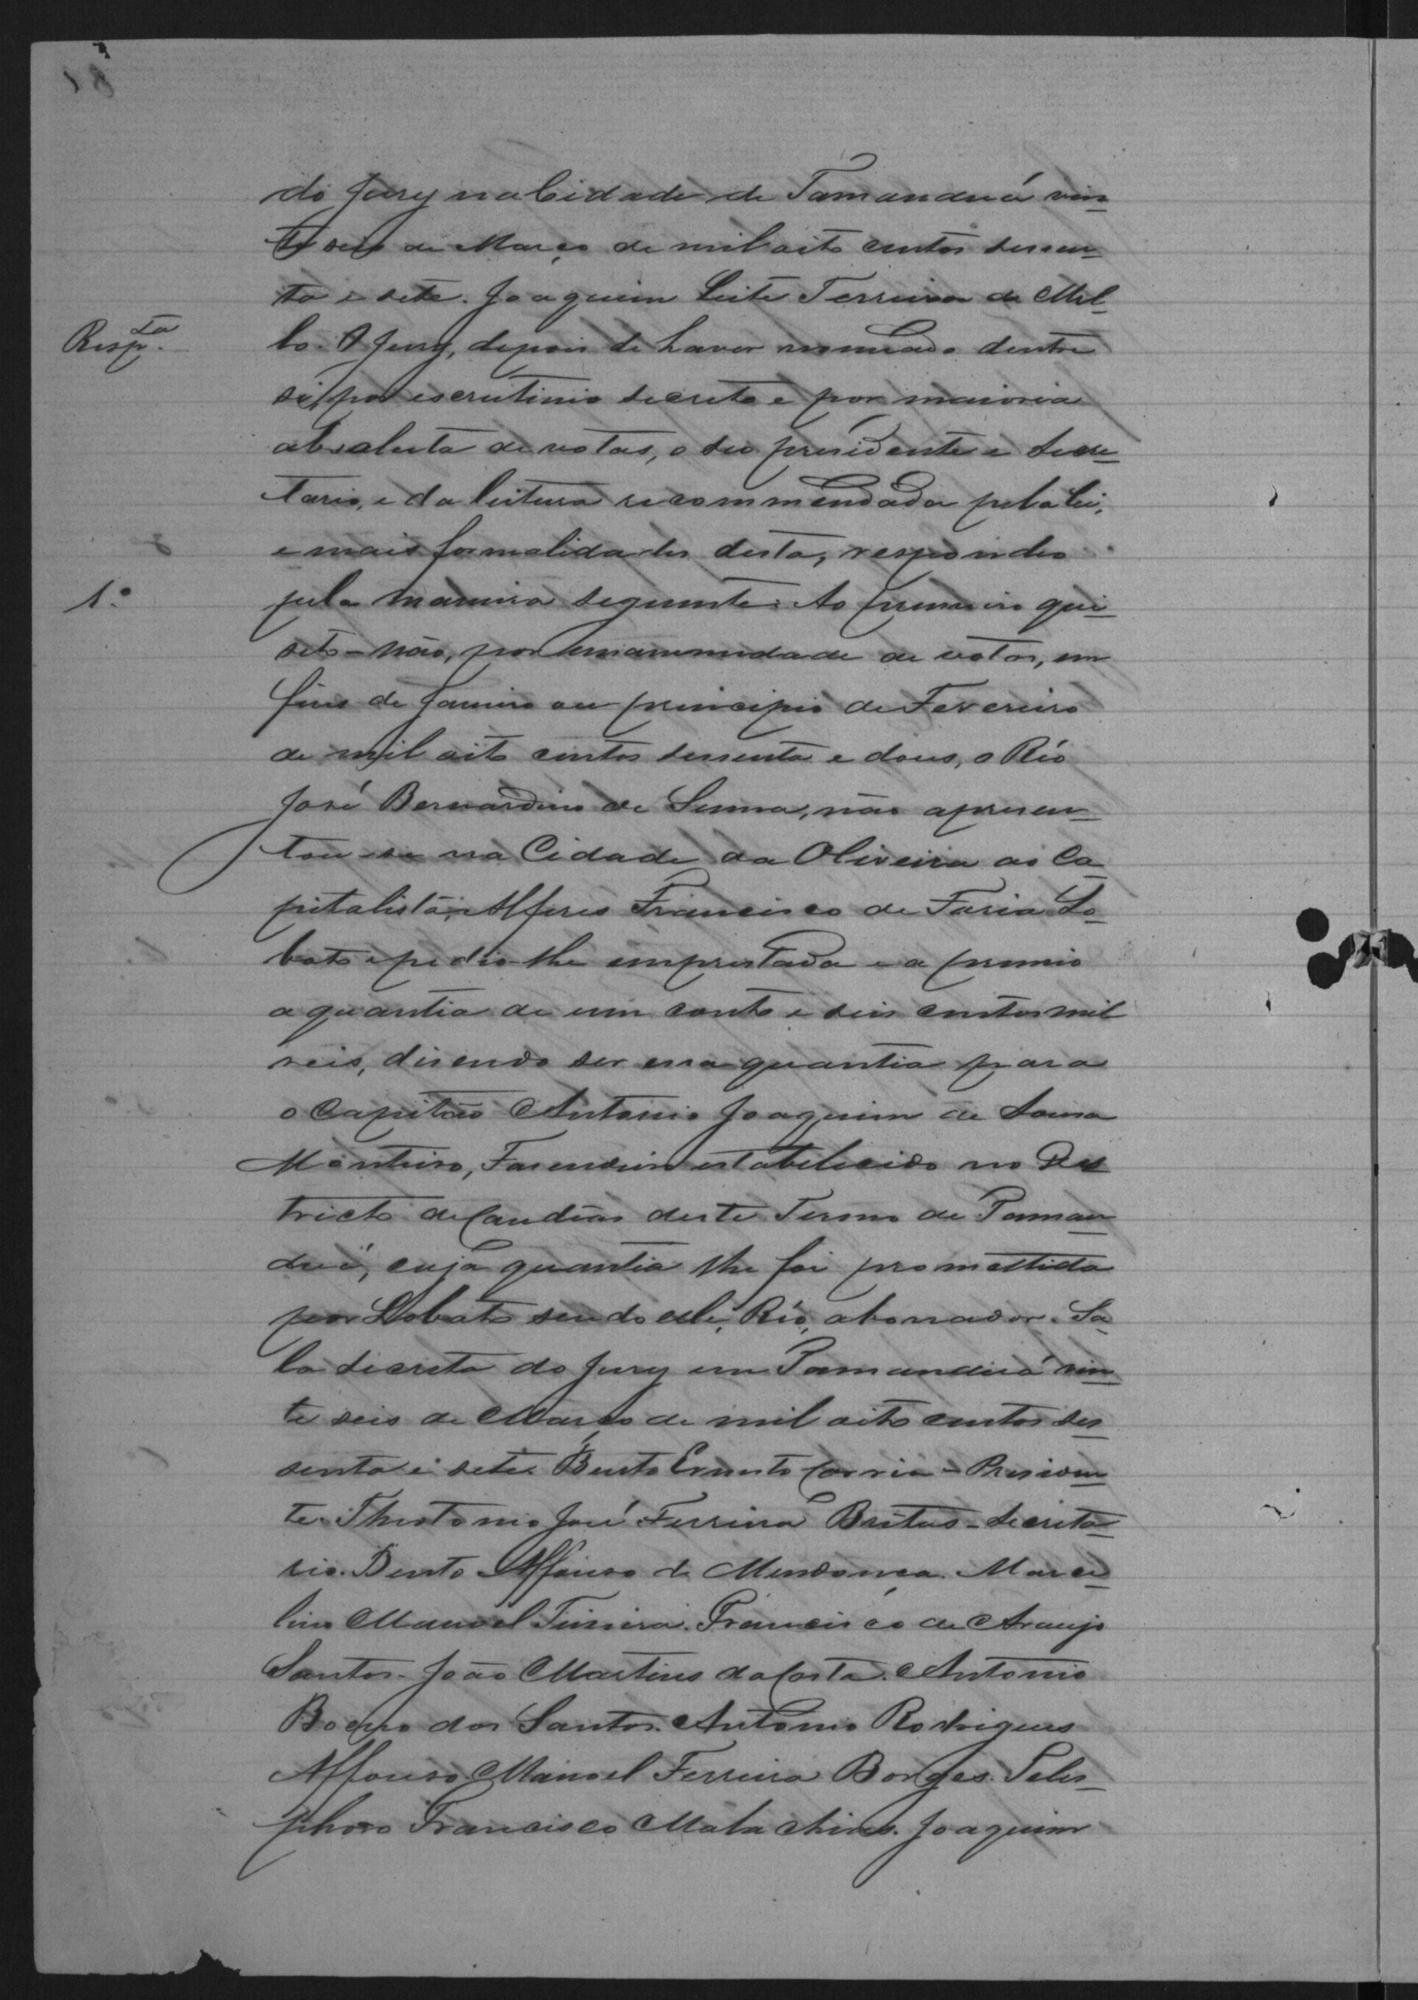 do Jury na Cidade de Tamanduá vin-
te seis de Março de mil oito centos sessen-
ta e sete. Joaquim Leite Ferreira de Mel-
Resp.ta
lo. O Jury, depois de haver nomeado dentre
si, por escrutinio secreto e por maioria
absoluta de votos, o seu presidente e secre-
tario, e da leitura recommendada pela lei,
e mais formalidades desta, respondeo
1.º
pela maneira seguinte: Ao primeiro que-
sito - não, por unanimidade de votos, em
fins de Janeiro ou principio de Fevereiro
de mil oito centos sessenta e dous, o Réo
José Bernardino de Senna, não apresen-
tou-se na Cidade da Oliveira ao Ca-
pitalista, Alferes Francisco de Faria Lo-
bato e pedio-lhe emprestada e a premio
a quantia de um conto e seis centos mil
reis, disendo ser essa quantia para
o Capitão Antonio Joaquim de Sousa
Monteiro, Fasendeiro estabelecido no Des-
tricto de Candeias deste Termo de Taman-
duá, cuja quantia lhe foi promettida
por Lobato sendo elle, Réo, abonador. Sa-
la secreta do Jury em Tamanduá vin-
te seis de Março de mil oito centos ses-
senta e sete. Bento Ernesto Correia - Presiden-
te. Theotonio José Ferreira Britas - Secreta-
rio. Bento Affonso de Mendonça. Marce-
lino Manoel Teixeira. Francisco de Araujo
Santos. João Martins da Costa. Antonio
Bo dos Santos. Antonio Rodrigues
Affonso. Manoel Ferreira Borges. Teles-
phoro Francisco Malachias. Joaquim